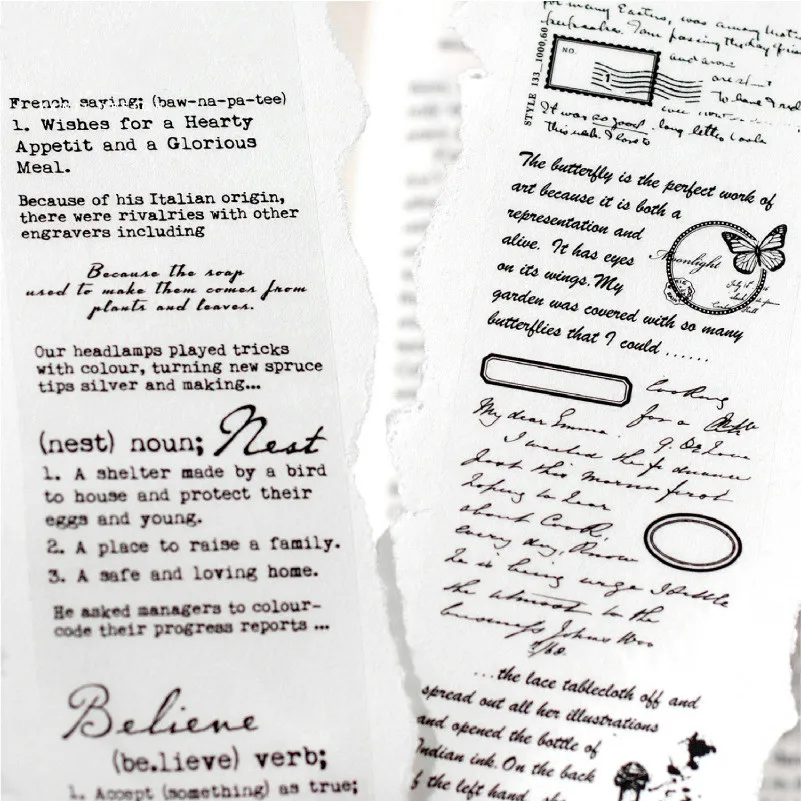 French saying; (baw-na-pa-tee)
1. Wishes for a Hearty
Appetit and a Glorious
Meal.
Because of his Italian origin,
there were rivalries with other
engravers including
Because the soap
used to make them comes from
plants and leaves.
Our headlamps played tricks
with colour, turning new spruce
tips silver and making...
(nest) noun; Nest
1. A shelter made by a bird
to house and protect their
eggs and young.
2. A place to raise a family.
3. A safe and loving home.
He asked managers to colour-
code their progress reports ...
Believe
(be.lieve) verb;
1. Accept (something) as true;
many Easters, was among
I am passing the day
STYLE 133_1000,60
NO.
1
and
are
To have I
It was so good. long letter
this week. I love to
The butterfly is the perfect work of
art because it is both a
representation and
alive. It has eyes
on its wings. My
garden was covered with so many
butterflies that I could ......
Moonlight
July
Looking
for a
My dear Emma.
I wanted the
just this morning first
hoping to hear
about Cook,
every day,
he is being
the utmost in the
business John
...the lace tablecloth off and
spread out all her illustrations
and opened the bottle of
Indian ink. On the back
the left hand,